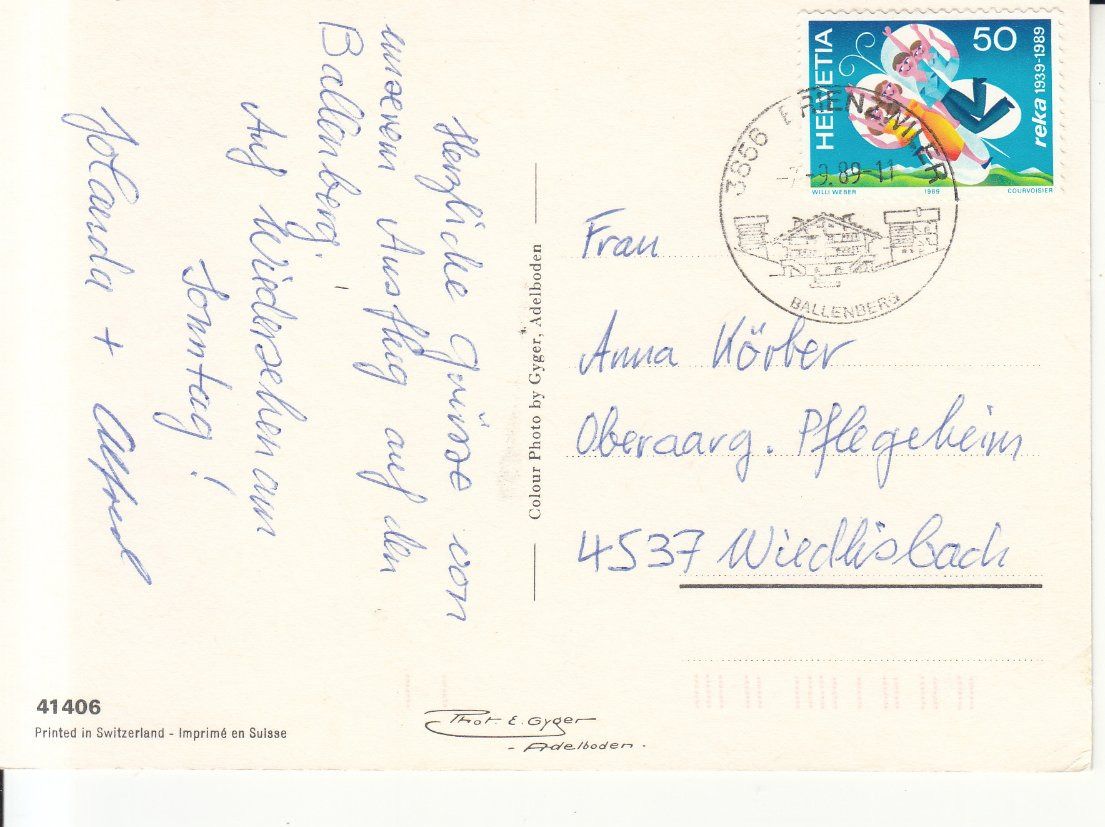 Herzliche Grüsse von
unserem Ausflug auf den
Ballenberg.
Auf Wiedersehen am
Sonntag!
Jolanda + Alfred
Colour Photo by Gyger, Adelboden
HELVETIA
50
reka 1939-1989
WILLI WEBER 1989 COURVOISIER
3856 BRIENZWILER
-7.-9.89-11
BALLENBERG
Frau
Anna Körber
Oberaarg. Pflegeheim
4537 Wiedlisbach
41406
Printed in Switzerland - Imprimé en Suisse
Phot. E. Gyger
- Adelboden -